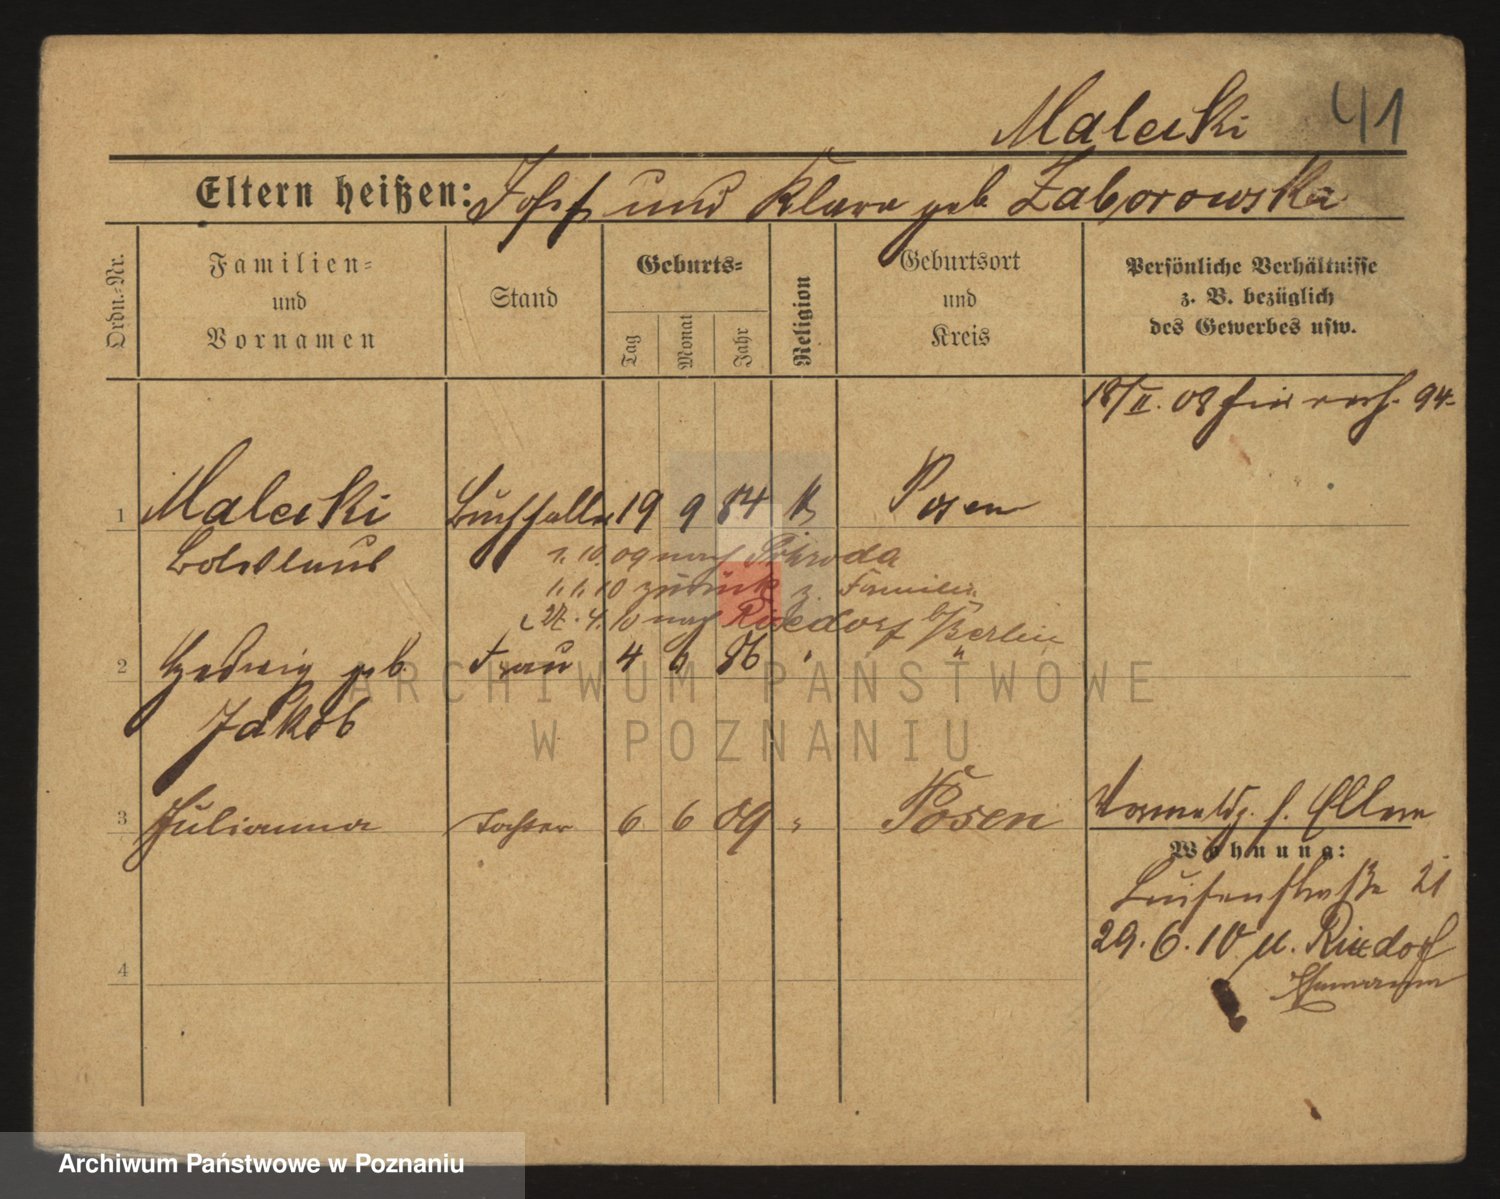 Malecki 41
Eltern heißen: Josef und Klara geb Zaborowska
Ordn.-Nr.
Familien-
und
Vornamen
Stand
Geburts-
Tag
Monat
Jahr
Religion
Geburtsort
und
Kreis
Persönliche Verhältnisse
z. B. bezüglich
des Gewerbes usw.
18/II. 08 94
1 Malecki Buchhalter 19 9 84 K Posen
Boleslaus
1. 10. 09 nach Schroda
1. 1. 10 zurück z. Familie
24. 4. 10 nach Rixdorf b/Berlin
2 Hedwig geb Frau 4 6 86 " "
Jakob
3 Julianna Tochter 6 6 09 " Posen
Eltern
Wohnung:
Luisenstraße 21
29. 6. 10 n. Rixdorf
Ehemann
4
ARCHIWUM PAŃSTWOWE
W POZNANIU
Archiwum Państwowe w Poznaniu